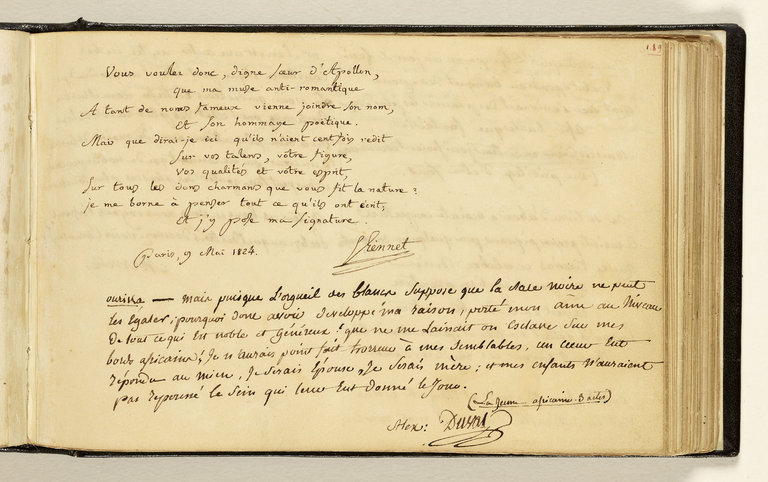 189
Vous voulez donc, digne sœur d'Apollon,
que ma muse anti-romantique
A tant de noms fameux vienne joindre son nom,
Et son hommage poëtique.
Mais que dirai-je ici qu'ils n'aient cent fois redit
Sur vos talens, vôtre figure,
Vos qualités et votre esprit,
Sur tous les dons charmans que vous fit la nature ?
je me borne à penser tout ce qu'ils ont écrit,
Et j'y pose ma signature.
Paris, 9 Mai 1824.
Viennet
ourika — mais puisque l'orgueil des blancs suppose que la race noire ne peut
les égaler, pourquoi donc avoir développé ma raison, porté mon ame au niveau
de tout ce qui est noble et généreux ! que ne me laissait on Esclave sur mes
bords africains, je n'aurais point fait horreur à mes semblables, un cœur eut
répondu au mien, je serais épouse, je serais mère, et mes enfants n'auraient
pas repoussé le sein qui leur eut donné le jour.
(La jeune africaine. 3 actes)
Alex: